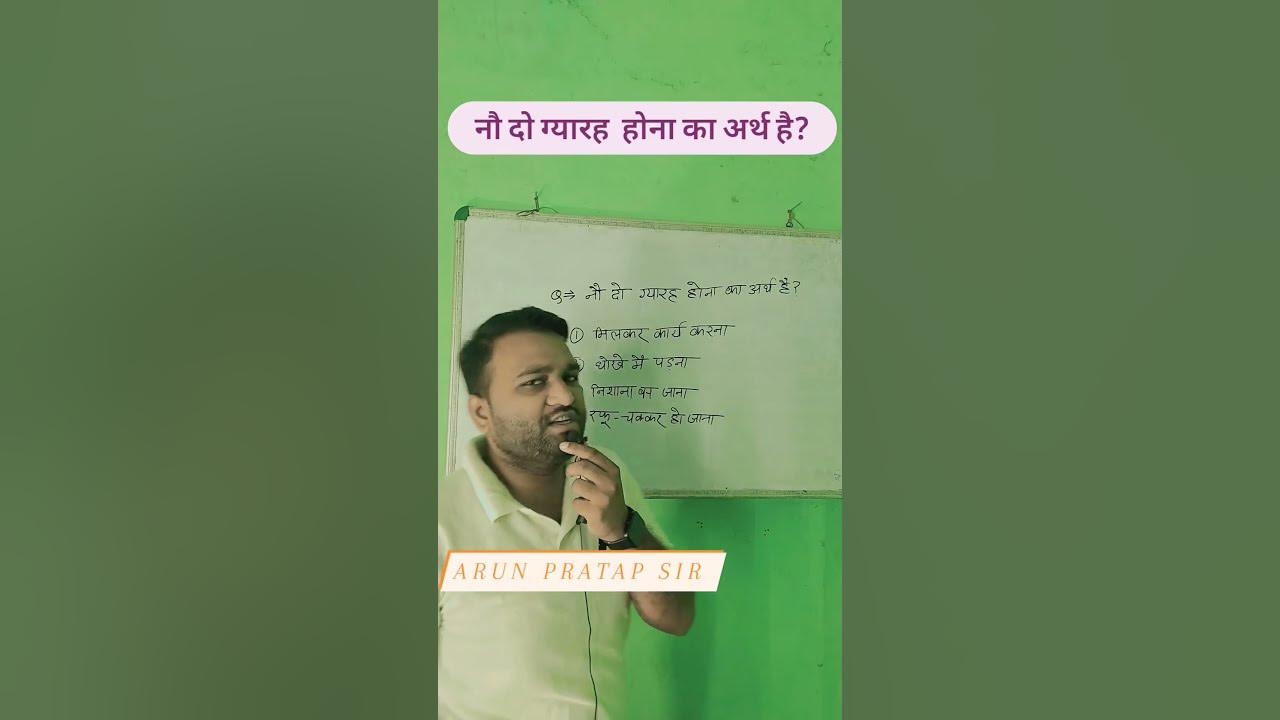 नौ दो ग्यारह होना का अर्थ है?
Q⇒ नौ दो ग्यारह होना का अर्थ है?
① मिलकर कार्य करना
धोखे में पड़ना
निशाना बन जाना
रफू-चक्कर हो जाना
ARUN PRATAP SIR